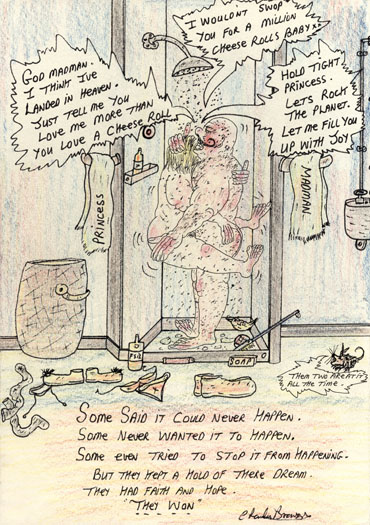 I WOULDNT SWOP
YOU FOR A MILLION
CHEESE ROLLS BABY
GOD MADMAN.
I THINK I'VE
LANDED IN HEAVEN.
JUST TELL ME YOU
LOVE ME MORE THAN
YOU LOVE A CHEESE ROLL
HOLD TIGHT
PRINCESS.
LETS ROCK
THE PLANET.
LET ME FILL YOU
UP WITH JOY
PRINCESS
MADMAN
SOAP
THEM TWO ARE AT IT
ALL THE TIME.
SOME SAID IT COULD NEVER HAPPEN.
SOME NEVER WANTED IT TO HAPPEN.
SOME EVEN TRIED TO STOP IT FROM HAPPENING.
BUT THEY KEPT A HOLD OF THERE DREAM.
THEY HAD FAITH AND HOPE.
"THEY WON"
Charles Bronson